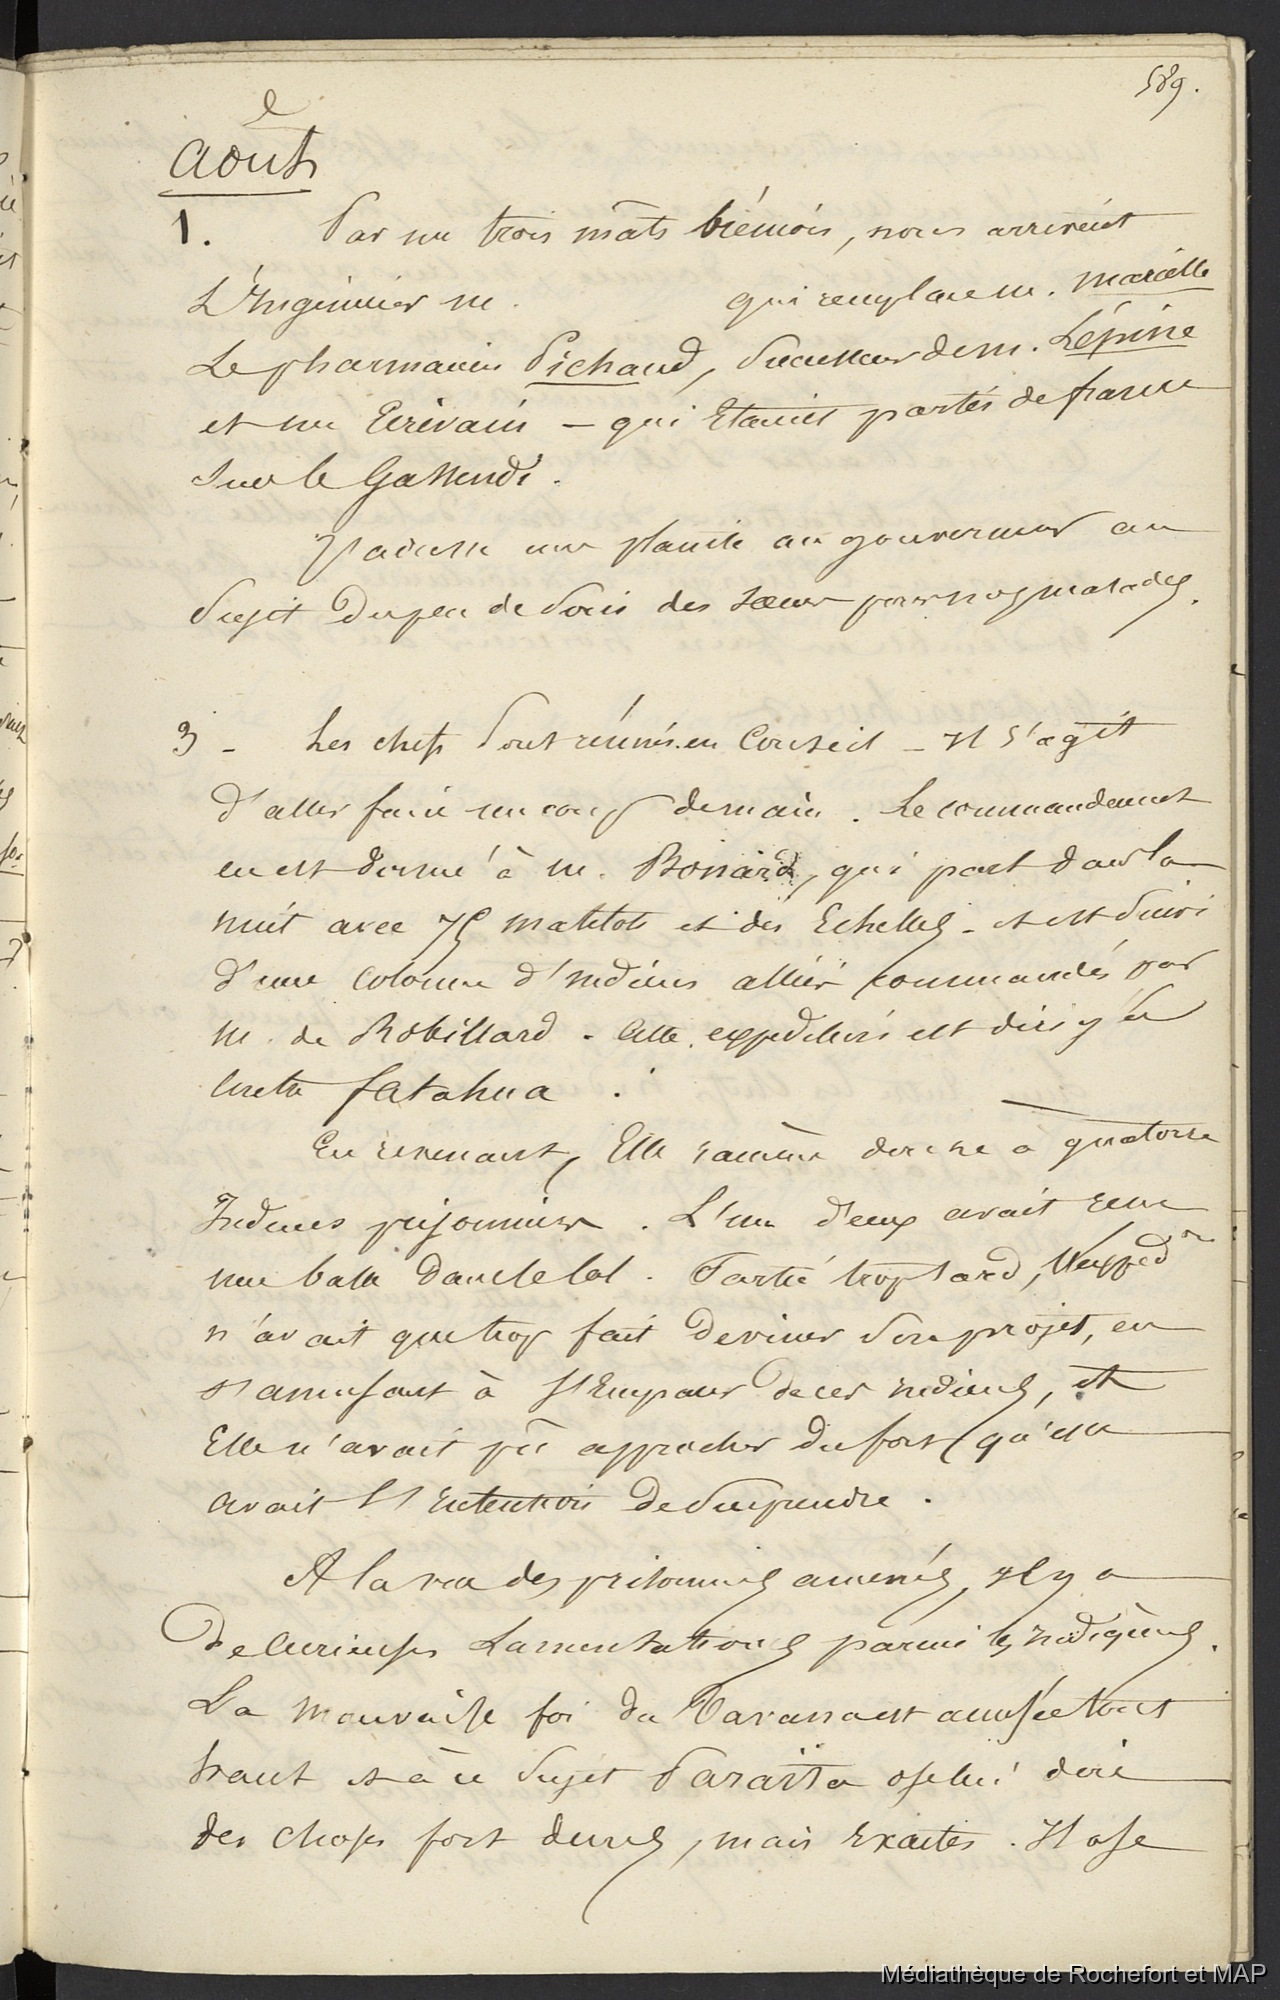 589.
août
1. Par un trois mâts brémois, nous arrivent
L'Ingénieur m. qui remplace m. marcille
Le pharmacien Pichaud, Successeur de m. Lépine
et un Ecrivain – qui Etaient partis de france
sur le Gassendi.
J'adresse une plainte au gouverneur au
Sujet du peu de Soin des sœurs pour nos malades.
3 – Les chefs Sont réunis en Conseil – Il s'agit
d'aller faire un coup de main. Le commandement
en est donné à m. Bonard, qui part dans la
nuit avec 75 matelots et des Echelles – et est Suivi
d'une colonne d'indiens alliés commandés par
m. de Robillard. Cette expédition est dirigée
contre fatahua.
En revenant, Elle ramène douze à quatorze
Indiens prisonniers. L'un d'eux avait reçu
une balle dans le col. Partie trop tard, l'expédon
n'avait que trop fait deviner Son projet, en
s'amusant à s'Emparer de ces indiens, et
Elle n'avait pû approcher du fort qu'elle
avait l'intention de Surprendre.
A la vue des prisonniers amenés, il y a
de curieuses Lamentations parmi les indigènes.
La mauvaise foi de Tavana est accusée tout
haut et à ce Sujet Paraïta ose lui dire
des choses fort dures, mais exactes. Il ose
Médiathèque de Rochefort et MAP